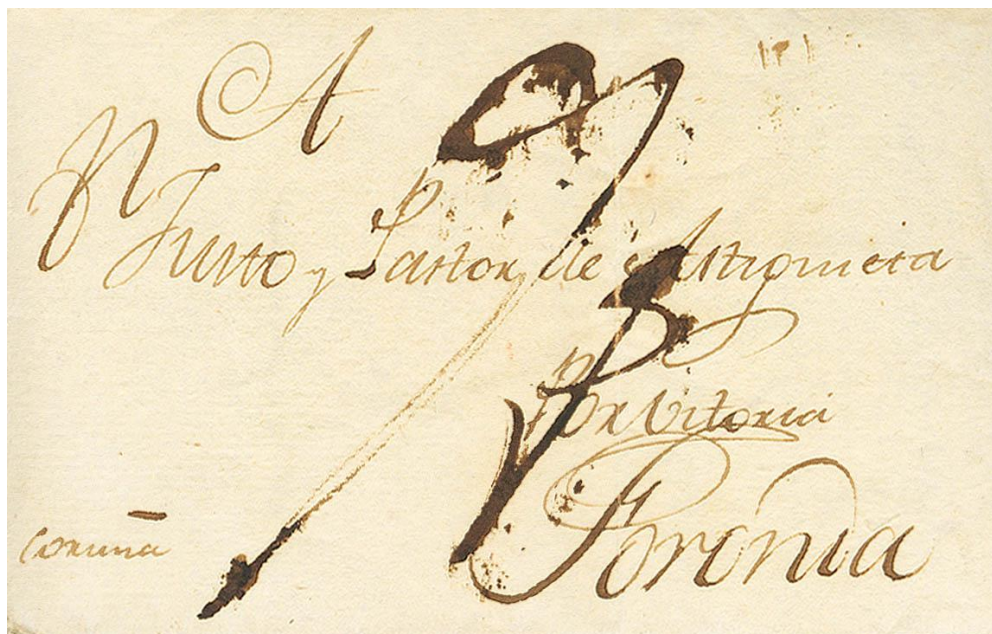 A
Dn Justo y Pastor de Astiguieta
Por Vitoria
Foronda
coruña